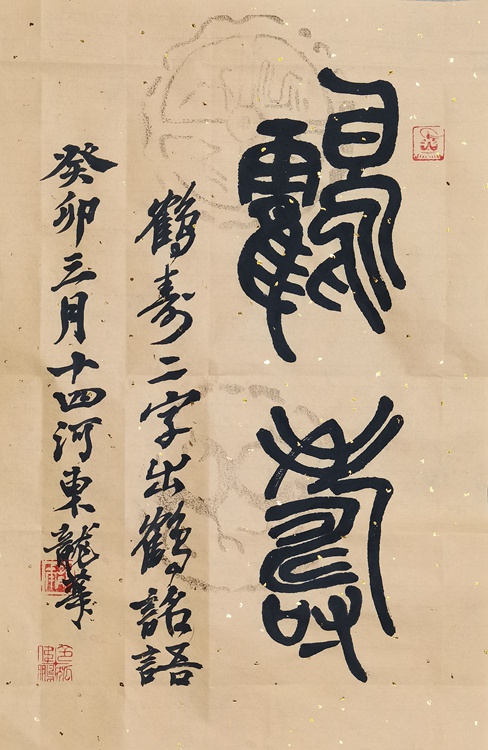 鶴壽
鶴壽二字出鶴銘語
癸卯三月十四河東龍華